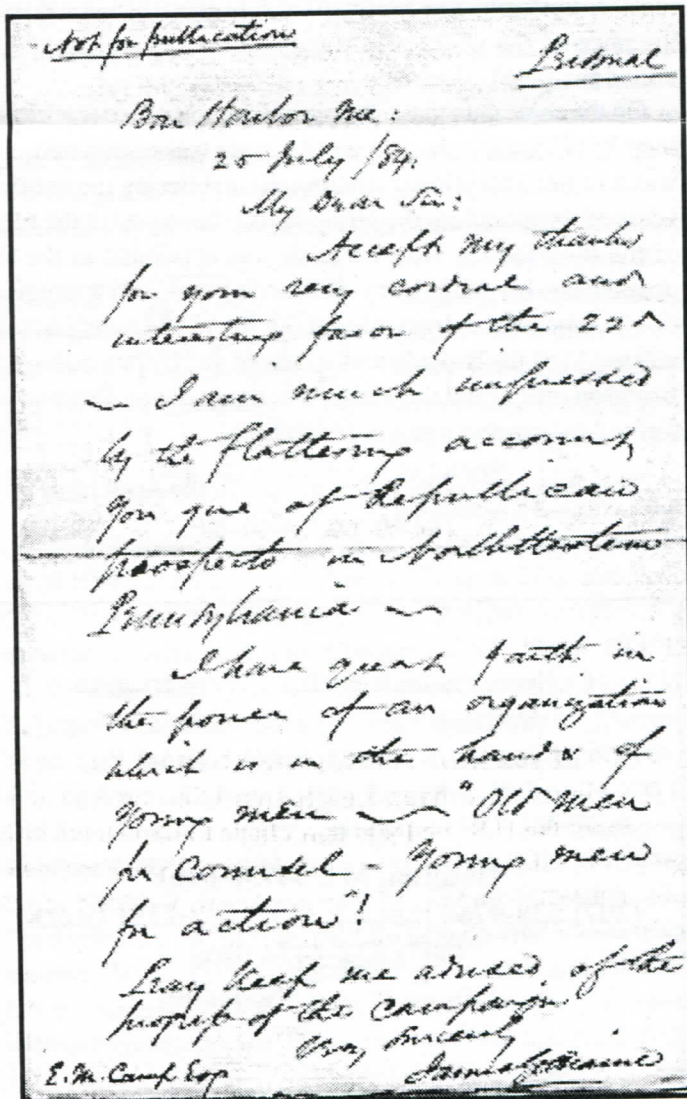 Not for publication
Personal
Bar Harbor Me:
25 July/84.
My Dear Sir:
Accept my thanks
for your very cordial and
interesting favor of the 22nd
— I am much impressed
by the flattering account
you give of Republican
prospects in Northeastern
Pennsylvania —
I have great faith in
the power of an organization
which is in the hands of
young men — "Old men
for Counsel - Young men
for action"!
Pray keep me advised of the
progress of the campaign
Very Sincerely
James G Blaine
E. M. Camp Esq